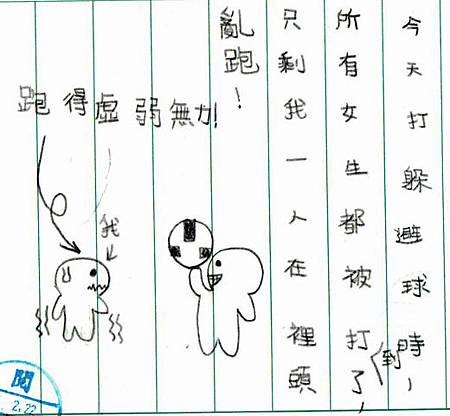 今天打躲避球時,
所有女生都被打到了,
只剩我一人在裡頭
亂跑!
跑得虛弱無力!
我
閱
2.22